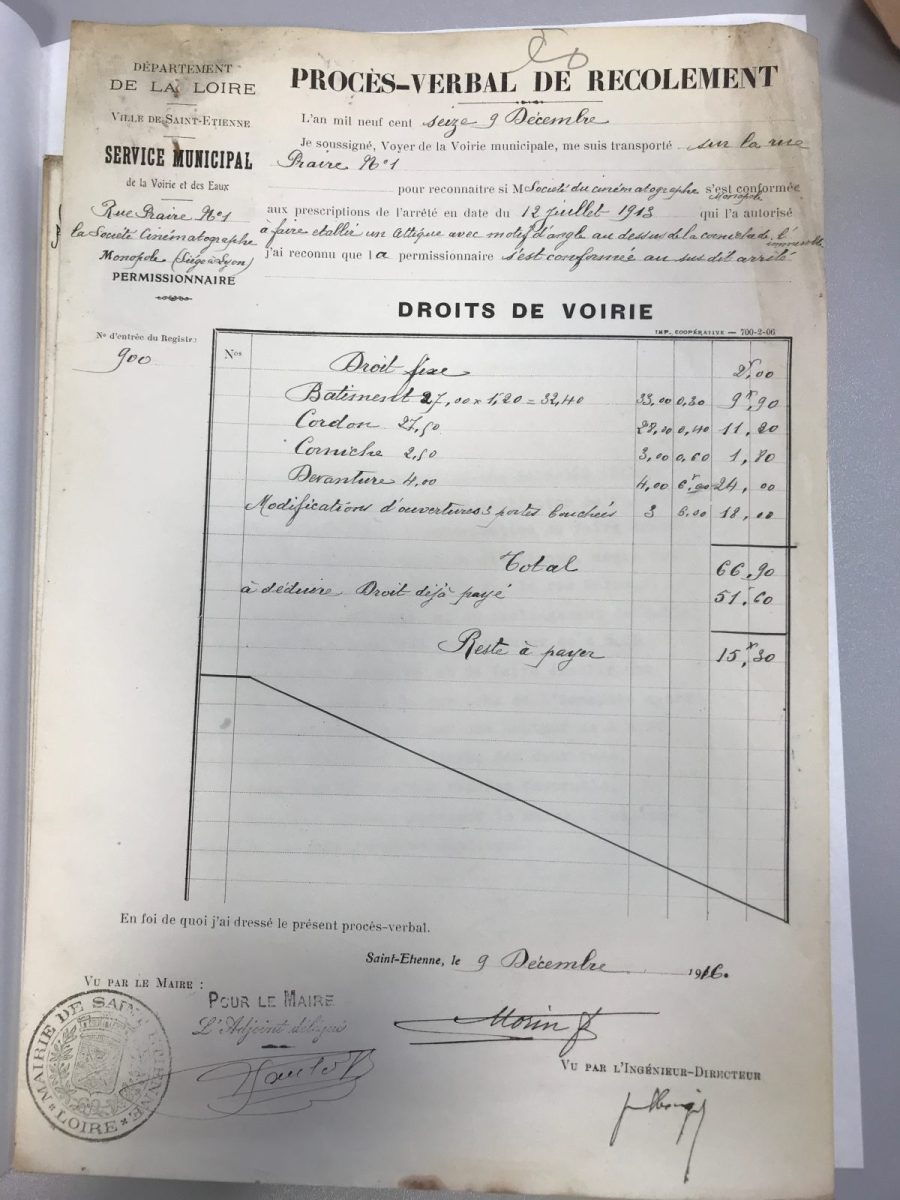 DÉPARTEMENT
DE LA LOIRE
VILLE DE SAINT-ETIENNE
SERVICE MUNICIPAL
de la Voirie et des Eaux
Rue Praire N°1
la Société Cinématographe
Monopole (Siège à Lyon)
PERMISSIONNAIRE
PROCÈS-VERBAL DE RECOLEMENT
L'an mil neuf cent seize 9 Décembre
Je soussigné, Voyer de la Voirie municipale, me suis transporté sur la rue
Praire N°1
pour reconnaitre si M Société du cinématographe s'est conformée
Monopole
aux prescriptions de l'arrêté en date du 12 juillet 1913 qui l'a autorisé
à faire etablir un Attique avec motif d'angle au dessus de la corniche de l'immeuble
j'ai reconnu que la permissionnaire s'est conformée au sus dit arrêté
DROITS DE VOIRIE
IMP. COOPÉRATIVE — 700-2-06
N° d'entrée du Registre:
900
Nos
Droit fixe 2f,00
Batiment 27,00 x 1,20 = 32,40 33,00 0,30 9f,90
Cordon 27,50 28,00 0,40 11,20
Corniche 2,50 3,00 0,60 1,80
Devanture 4,00 4,00 6f,00 24,00
Modifications d'ouvertures 3 portes bouchées 3 6,00 18,00
Total 66,90
à déduire Droit déjà payé 51,60
Reste à payer 15f,30
En foi de quoi j'ai dressé le présent procès-verbal.
Saint-Etienne, le 9 Décembre 1916.
VU PAR LE MAIRE :
POUR LE MAIRE
L'Adjoint délégué
Morin
VU PAR L'INGÉNIEUR-DIRECTEUR
MAIRIE DE SAINT ETIENNE
* LOIRE *